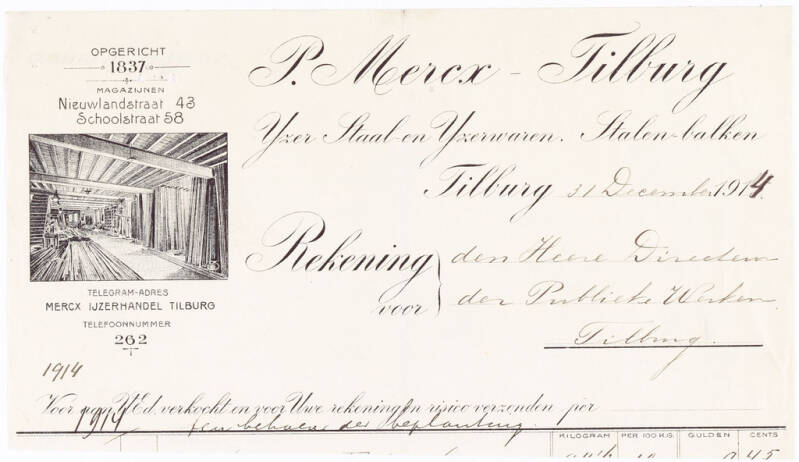 OPGERICHT
1837
MAGAZIJNEN
Nieuwlandstraat 43
Schoolstraat 58
TELEGRAM-ADRES
MERCX IJZERHANDEL TILBURG
TELEFOONNUMMER
262
P. Mercx - Tilburg
Yzer Staal-en Yzerwaren. Stalen-balken
Tilburg 31 December 1914.
Rekening voor
den Heere Directeur
der Publieke Werken
Tilburg.
1914
Voor aan UEd. verkocht en voor Uwe rekening en risico verzenden per
1914 ten behoeve der beplanting.
KILOGRAM PER 100 K.G. GULDEN CENTS
45